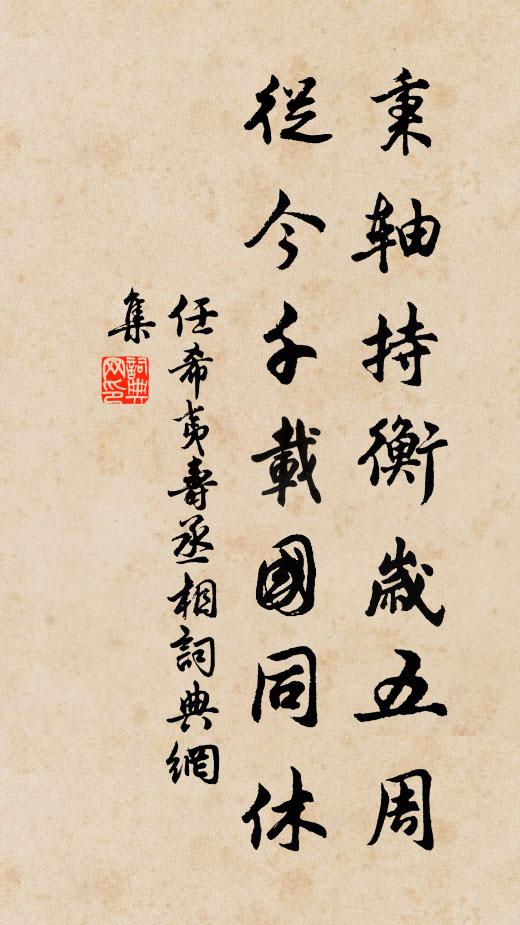 秉軸持衡歲五周
從今千載國同休
任希夷壽丞相詞典網
集
詞典网印